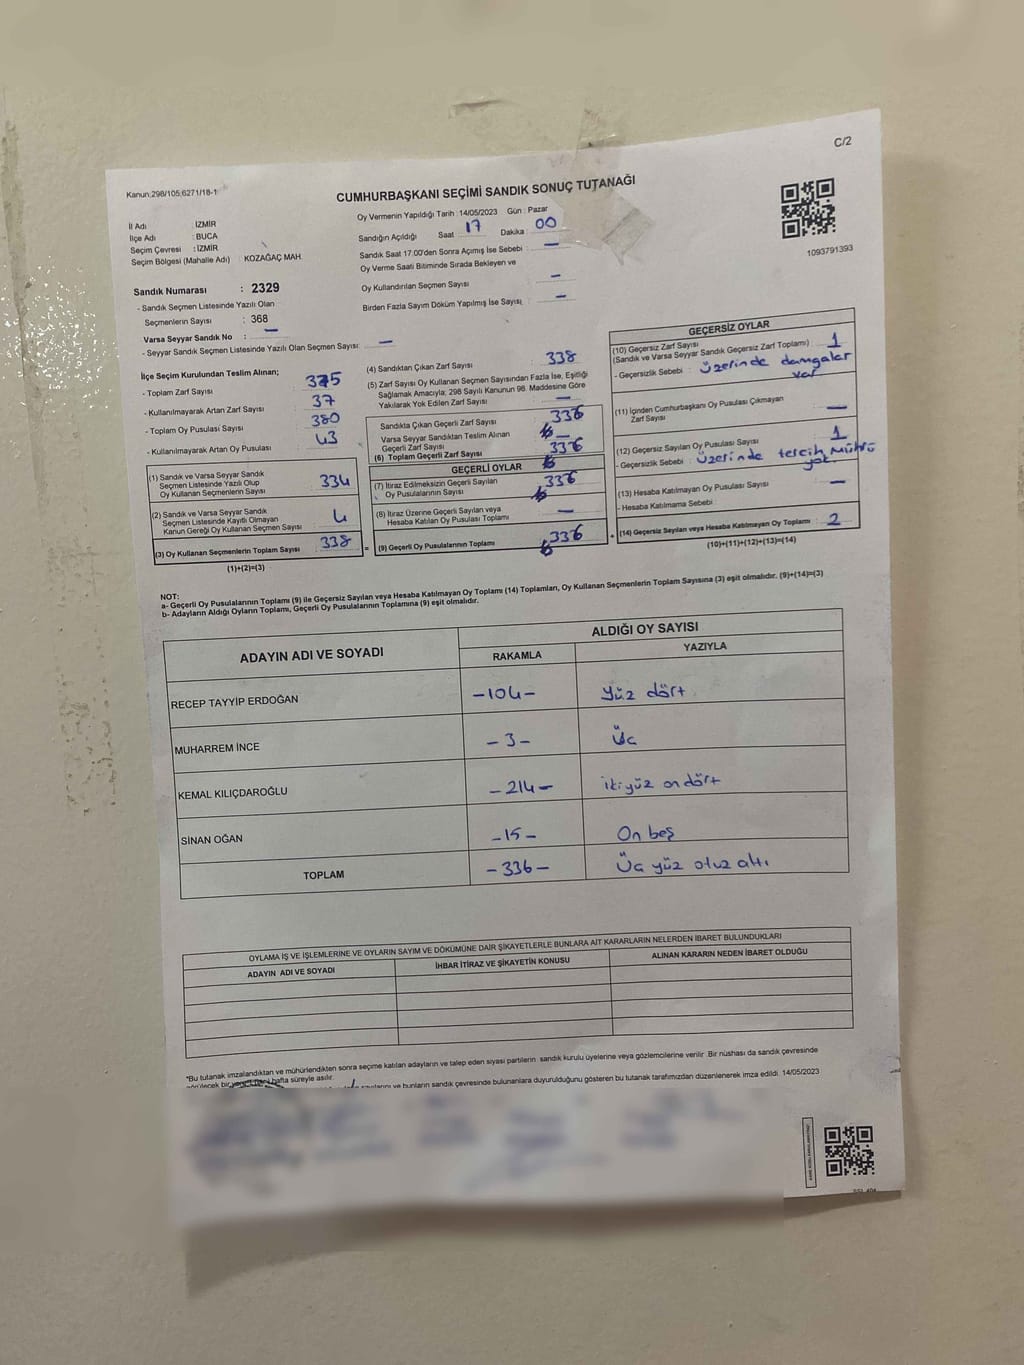 C/2
Kanun:298/105;6271/18-1
CUMHURBAŞKANI SEÇİMİ SANDIK SONUÇ TUTANAĞI
İl Adı : İZMİR
İlçe Adı : BUCA
Seçim Çevresi : İZMİR
Seçim Bölgesi (Mahalle Adı) : KOZAĞAÇ MAH.
Oy Vermenin Yapıldığı Tarih : 14/05/2023 Gün : Pazar
Sandığın Açıldığı Saat 17 Dakika : 00
Sandık Saat 17.00'den Sonra Açımış İse Sebebi : —
Oy Verme Saati Bitiminde Sırada Bekleyen ve
Oy Kullandırılan Seçmen Sayısı —
Birden Fazla Sayım Döküm Yapılmış İse Sayısı —
1093791393
Sandık Numarası : 2329
- Sandık Seçmen Listesinde Yazılı Olan
Seçmenlerin Sayısı : 368
Varsa Seyyar Sandık No : —
- Seyyar Sandık Seçmen Listesinde Yazılı Olan Seçmen Sayısı: —
İlçe Seçim Kurulundan Teslim Alınan;
- Toplam Zarf Sayısı 375
- Kullanılmayarak Artan Zarf Sayısı 37
- Toplam Oy Pusulası Sayısı 380
- Kullanılmayarak Artan Oy Pusulası 43
(1) Sandık ve Varsa Seyyar Sandık
Seçmen Listesinde Yazılı Olup
Oy Kullanan Seçmenlerin Sayısı 334
(2) Sandık ve Varsa Seyyar Sandık
Seçmen Listesinde Kayıtlı Olmayan
Kanun Gereği Oy Kullanan Seçmen Sayısı 4
(3) Oy Kullanan Seçmenlerin Toplam Sayısı 338
(1)+(2)=(3)
(4) Sandıktan Çıkan Zarf Sayısı : 338
(5) Zarf Sayısı Oy Kullanan Seçmen Sayısından Fazla İse, Eşitliği
Sağlamak Amacıyla; 298 Sayılı Kanunun 98. Maddesine Göre
Yakılarak Yok Edilen Zarf Sayısı : —
Sandıkta Çıkan Geçerli Zarf Sayısı : 336
Varsa Seyyar Sandıktan Teslim Alınan
Geçerli Zarf Sayısı : —
(6) Toplam Geçerli Zarf Sayısı : 336
GEÇERLİ OYLAR
(7) İtiraz Edilmeksizin Geçerli Sayılan
Oy Pusulalarının Sayısı : 336
(8) İtiraz Üzerine Geçerli Sayılan veya
Hesaba Katılan Oy Pusulası Toplamı : —
= (9) Geçerli Oy Pusulalarının Toplamı 336
GEÇERSİZ OYLAR
(10) Geçersiz Zarf Sayısı
(Sandık ve Varsa Seyyar Sandık Geçersiz Zarf Toplamı) : 1
- Geçersizlik Sebebi : üzerinde damgalar
var
(11) İçinden Cumhurbaşkanı Oy Pusulası Çıkmayan
Zarf Sayısı —
(12) Geçersiz Sayılan Oy Pusulası Sayısı : 1
- Geçersizlik Sebebi : üzerinde tercih mührü
yok
(13) Hesaba Katılmayan Oy Pusulası Sayısı —
- Hesaba Katılmama Sebebi :
+ (14) Geçersiz Sayılan veya Hesaba Katılmayan Oy Toplamı : 2
(10)+(11)+(12)+(13)=(14)
NOT:
a- Geçerli Oy Pusulalarının Toplamı (9) ile Geçersiz Sayılan veya Hesaba Katılmayan Oy Toplamı (14) Toplamları, Oy Kullanan Seçmenlerin Toplam Sayısına (3) eşit olmalıdır. (9)+(14)=(3)
b- Adayların Aldığı Oyların Toplamı, Geçerli Oy Pusulalarının Toplamına (9) eşit olmalıdır.
ADAYIN ADI VE SOYADI ALDIĞI OY SAYISI
RAKAMLA YAZIYLA
RECEP TAYYİP ERDOĞAN -104- Yüz dört
MUHARREM İNCE -3- Üç
KEMAL KILIÇDAROĞLU -214- ikiyüz ondört
SİNAN OĞAN -15- On beş
TOPLAM -336- Üç yüz otuz altı
OYLAMA İŞ VE İŞLEMLERİNE VE OYLARIN SAYIM VE DÖKÜMÜNE DAİR ŞİKAYETLERLE BUNLARA AİT KARARLARIN NELERDEN İBARET BULUNDUKLARI
ADAYIN ADI VE SOYADI İHBAR İTİRAZ VE ŞİKAYETİN KONUSU ALINAN KARARIN NEDEN İBARET OLDUĞU
*Bu tutanak imzalandıktan ve mühürlendikten sonra seçime katılan adayların ve talep eden siyasi partilerin sandık kurulu üyelerine veya gözlemcilerine verilir. Bir nüshası da sandık çevresinde
görülecek bir yere bir hafta süreyle asılır.
ve bunların sandık çevresinde bulunanlara duyurulduğunu gösteren bu tutanak tarafımızdan düzenlenerek imza edildi. 14/05/2023